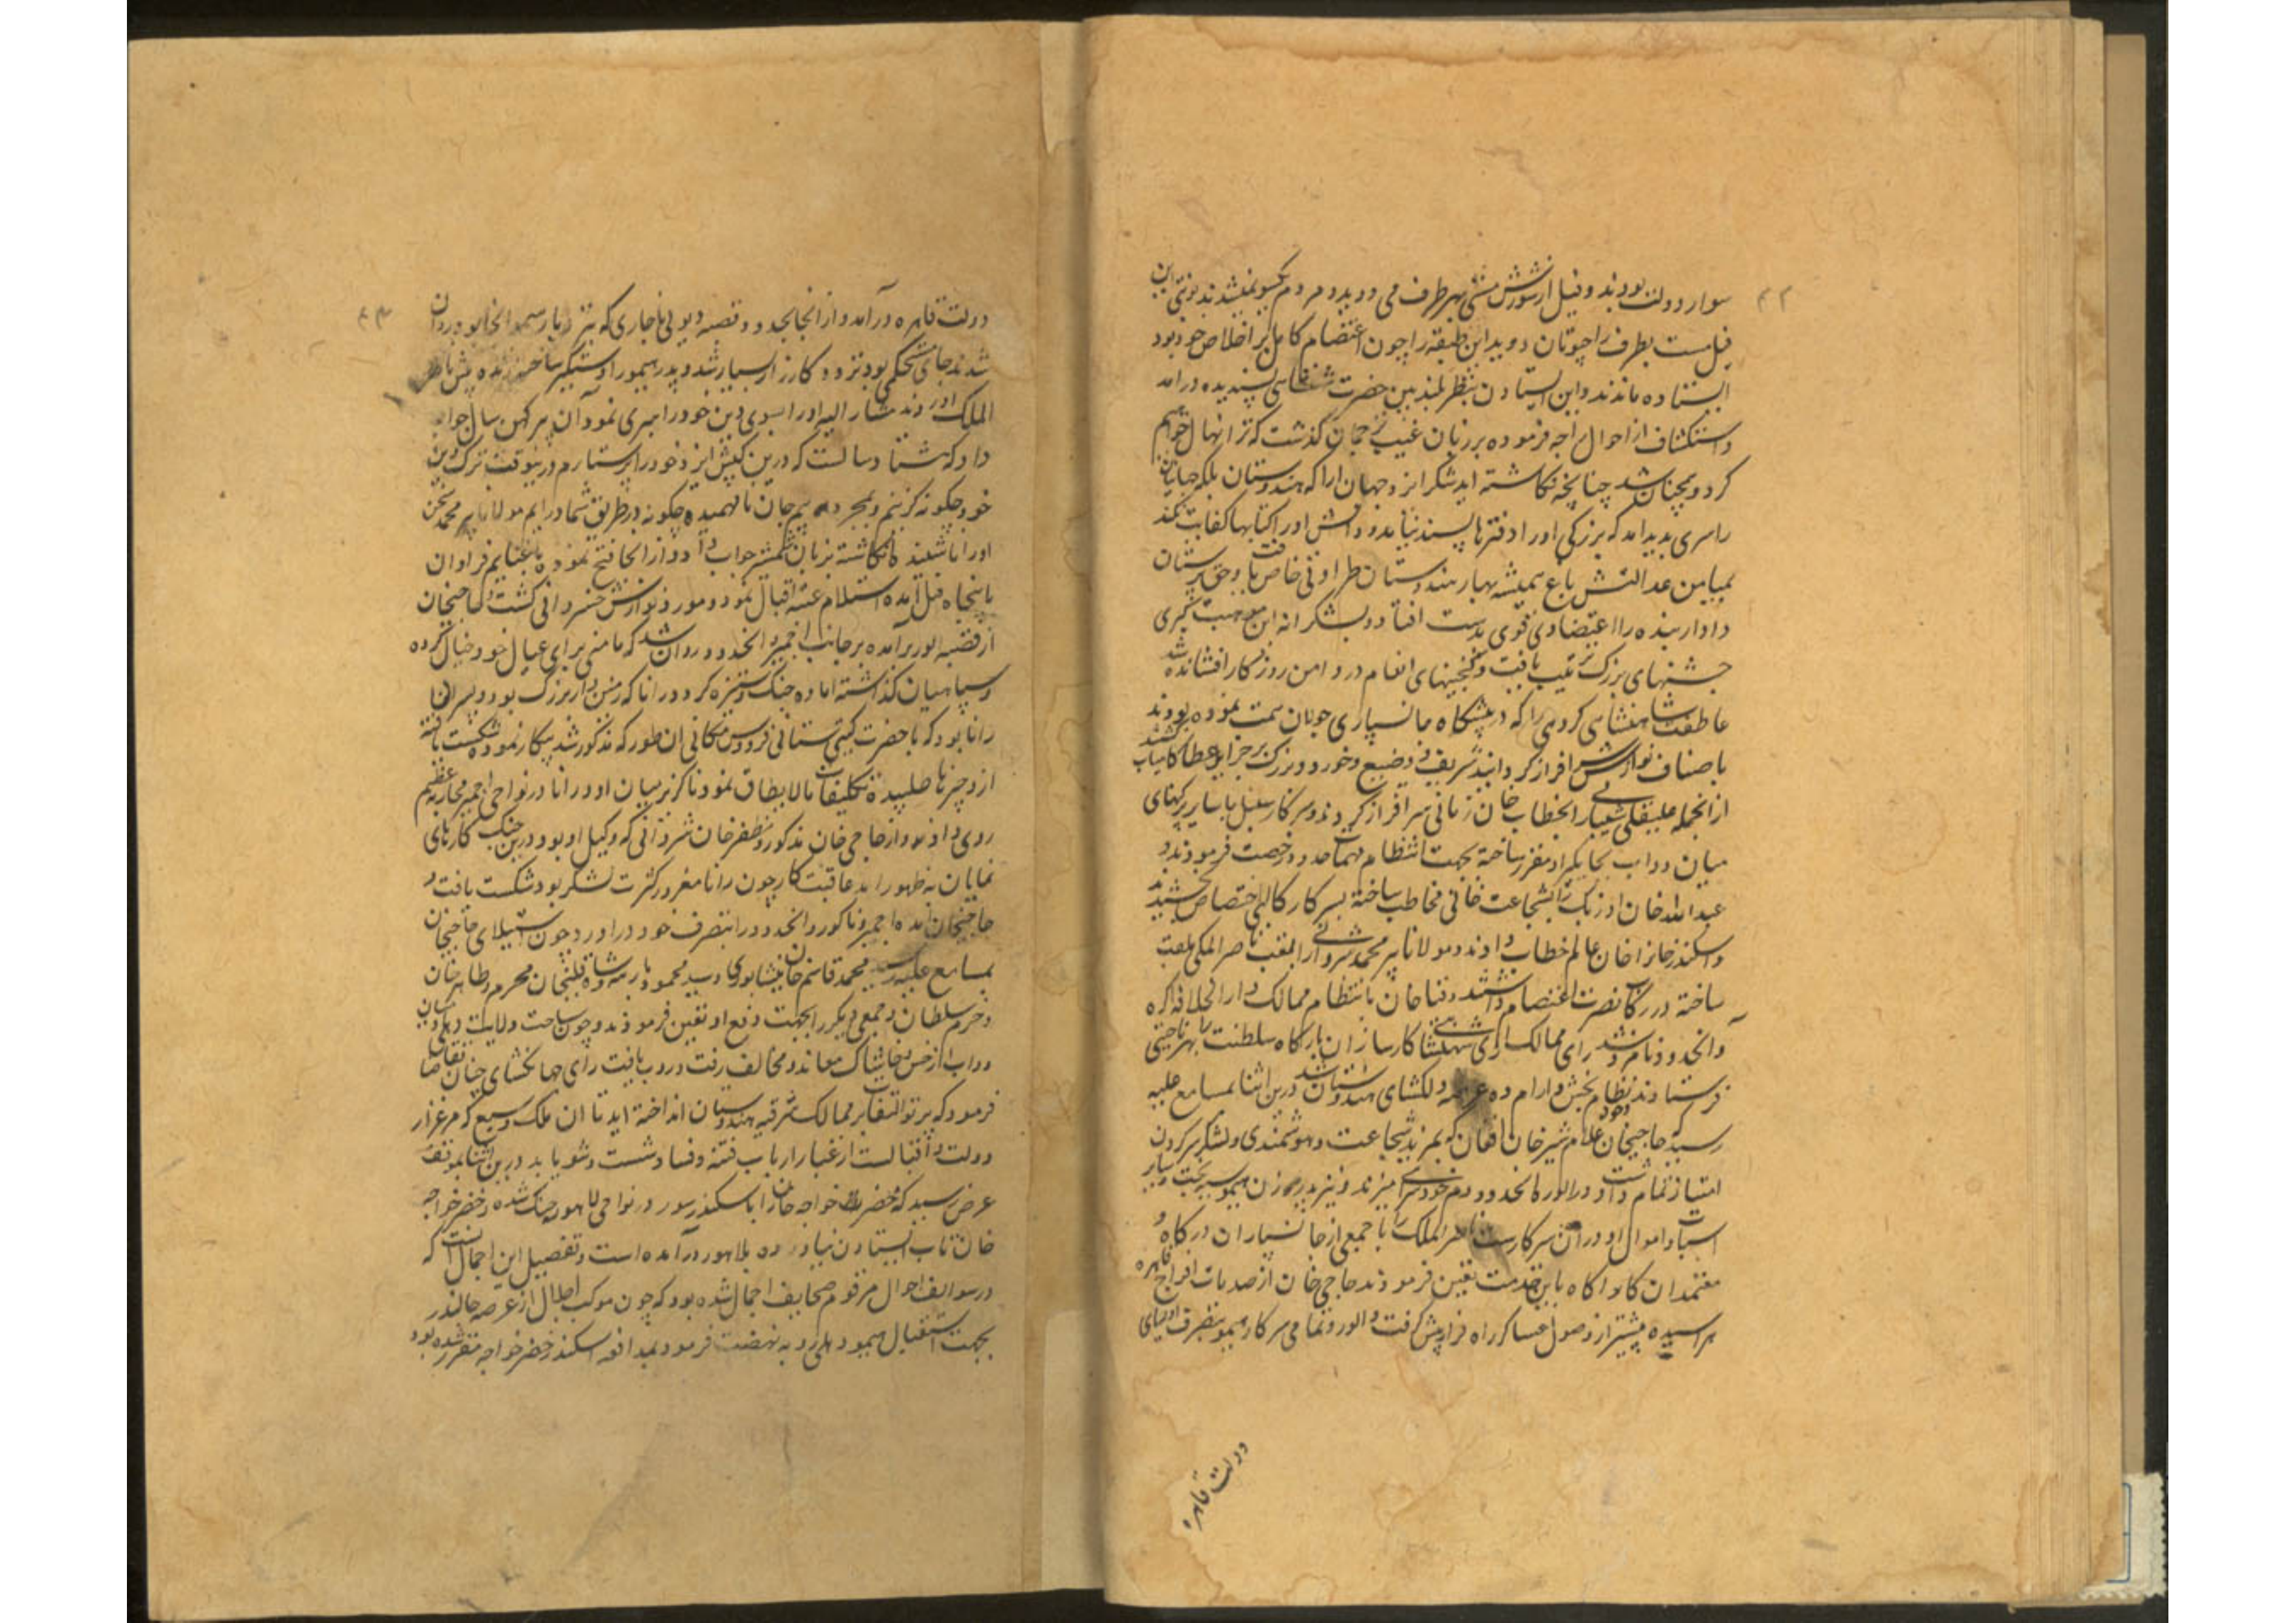 ۴۲
سوار دولت بودند و فیل از شورش مستی بهر طرف می دوید و مردم یکسو میشدند نوبتی این
فیل مست بطرف راجپوتان دوید این طبقه را چون اعتضام کامل بر اخلاص خود بود
ایستاده ماندند و این ایستادن بنظر بلند بین حضرت شاهنشاهی پسندیده درآمد
و استکشاف از احوال راجه فرموده بر زبان غیب ترجمان گذشت که ترا نهال خواهیم
کرد و همچنان شد چنانچه نکاشته آید شکر ایزد جهان آرا که هندوستان بلکه جهانیان
راسری پدید آمد که بزرکی او را دفترها بسند نیاید و دانش او را کتابها کفایت نکند
بمیامن عدالتش باغ همیشه بهار هندوستان طراوتی خاص یافت و حق پرستان
دادار بنده را اعتضادی قوی بدست افتاد و بشکرانه این موهبت کبری
جشنهای بزرک ترتیب یافت و کنجینهای انعام در دامن روزکار افشانده شد
عاطفت شاهنشاهی کروهی را که در پیشگاه جانسپاری جویان سمت نموده بودند
باصناف نوازش سرافراز کردانید شریف و وضیع و خورد و بزرک بر جزایل عطا کامیاب کشتند
از انجمله علیقلی شیبانی بخطاب خان زمانی سرافراز کردند و سرکار سنبل با سایر پرکنهای
میان دوآب بجایکیر او مقرر ساخته بجهت انتظام مهمات آن حدود رخصت فرمودند و
عبدالله خان اوزبک را بشجاعت خانی مخاطب ساخته بسرکار کالپی اختصاص بخشیدند
و اسکندر خانرا خان عالم خطاب دادند و مولانا پیر محمد شروانی را بلقب ناصر الملکی ملقب
ساخته در رکاب نصرت اعتصام داشتند و قیا خان بانتظام ممالک دارالخلافه اکره
و آنحدود نامزد شد رای ممالک آرای شهنشاهی کارسازان بارکاه سلطنت را بهر ناحیتی
فرستادند نظام بخش و آرام ده عرصه دلکشای هندوستان شد درین اثنا بمسامع علیه
رسید که حاجیخان غلام شیرخان افغان که بمزید شجاعت و هوشمندی و لشکر سرکردن
امتیاز تمام داشت و در الور و آنحدود دم خودسری میزند و نیز پدر و زن هیمو سیه بخت و سایر
اسباب و اموال او در آن سرکار است ناصر الملک را با جمعی از جانسپاران درکاه و
معتمدان کار آکاه باین خدمت تعین فرمودند حاجی خان از صدمات افواج قاهره
هراسیده پیشتر از وصول عساکر راه فرار پیش کرفت و الور و تمامی سرکار هیمو بتصرف اولیای
دولت قاهره
۴۳
دولت قاهره درآمد و از انجا بحدود قصبه دیولی ماجاری که بنه و بار هیمو انجا بود روان
شدند جای محکمی بود تردد و کارزار بسیار شد و پدر هیمو را دستگیر ساخته زنده پیش ناصر
الملک آوردند مشار الیه او را بسوی دین خود رهبری نمود آن پیر کهن سال جواب
داد که هشتاد سالست که درین کیش ایزد خود را پرستارم درین وقت ترک دین
خود چکونه کزینم و بمجرد بیم جان نافهمیده چکونه در طریق شما درآیم مولانا پیر محمد سخن
او را ناشنیده انکاشته بزبان شمشیر جواب داد و از انجا فتح نموده با غنایم فراوان
با پنجاه فیل آمده استلام عتبه اقبال نمود و مورد نوازش خسروانی کشت و حاجیخان
از قصبه الور برآمده بر جانب اجمیر و آنحدود روان شد که مامنی برای عیال خود خیال کرده
و سپاهیان کذاشته آماده جنک و ستیزه کردد رانا که زمین دار بزرک بود و پسر آن
رانا بود که با حضرت کیتی ستانی فردوس مکانی آن طور که مذکور شد پیکار نموده شکست یافته
ازو چیزها طلبیده تکلیفات مالایطاق نمود ناکزیر میان او و رانا در نواحی اجمیر محاربه عظیم
روی داد و از حاجی خان مذکور و مظفر خان شروانی که وکیل او بود درین جنک کارهای
نمایان به ظهور آمد عاقبت کار چون رانا مغرور کثرت لشکر بود شکست یافت و
حاجیخان آمده اجمیر و ناکور و آنحدود را بتصرف خود درآورد و چون استیلای حاجیخان
بمسامع علیه رسید محمد قاسم خان نیشابوری و سید محمود بارهه و شاه قلیخان محرم و طاهر خان
و خرم سلطان و جمعی دیکر را بجهت دفع او تعین فرمودند و چون ساحت ولایت دهلی و میان
دوآب از خس و خاشاک معاند و مخالف رفت و روب یافت رای جهانکشای چنان تقاضا
فرمود که پرتو التفات بر ممالک شرقیه هندوستان انداخته آید تا آن ملک وسیع که مرغزار
دولت و اقبالست از غبار ارباب فتنه و فساد شست و شو یابد درین اثنا بموقف
عرض رسید که خضر خواجه خان را با سکندر سور در نواحی لاهور جنک شده و خضر خواجه
خان تاب ایستادن نیاورده بلاهور درآمده است و تفصیل این اجمال آنست که
در سوالف احوال مرقوم صحایف اجمال شده بود که چون موکب اجلال از عرصه جالندر
بجهت استقبال هیمو دهلی رویه نهضت فرمود بمدافعه اسکندر خضر خواجه مقرر شده بود